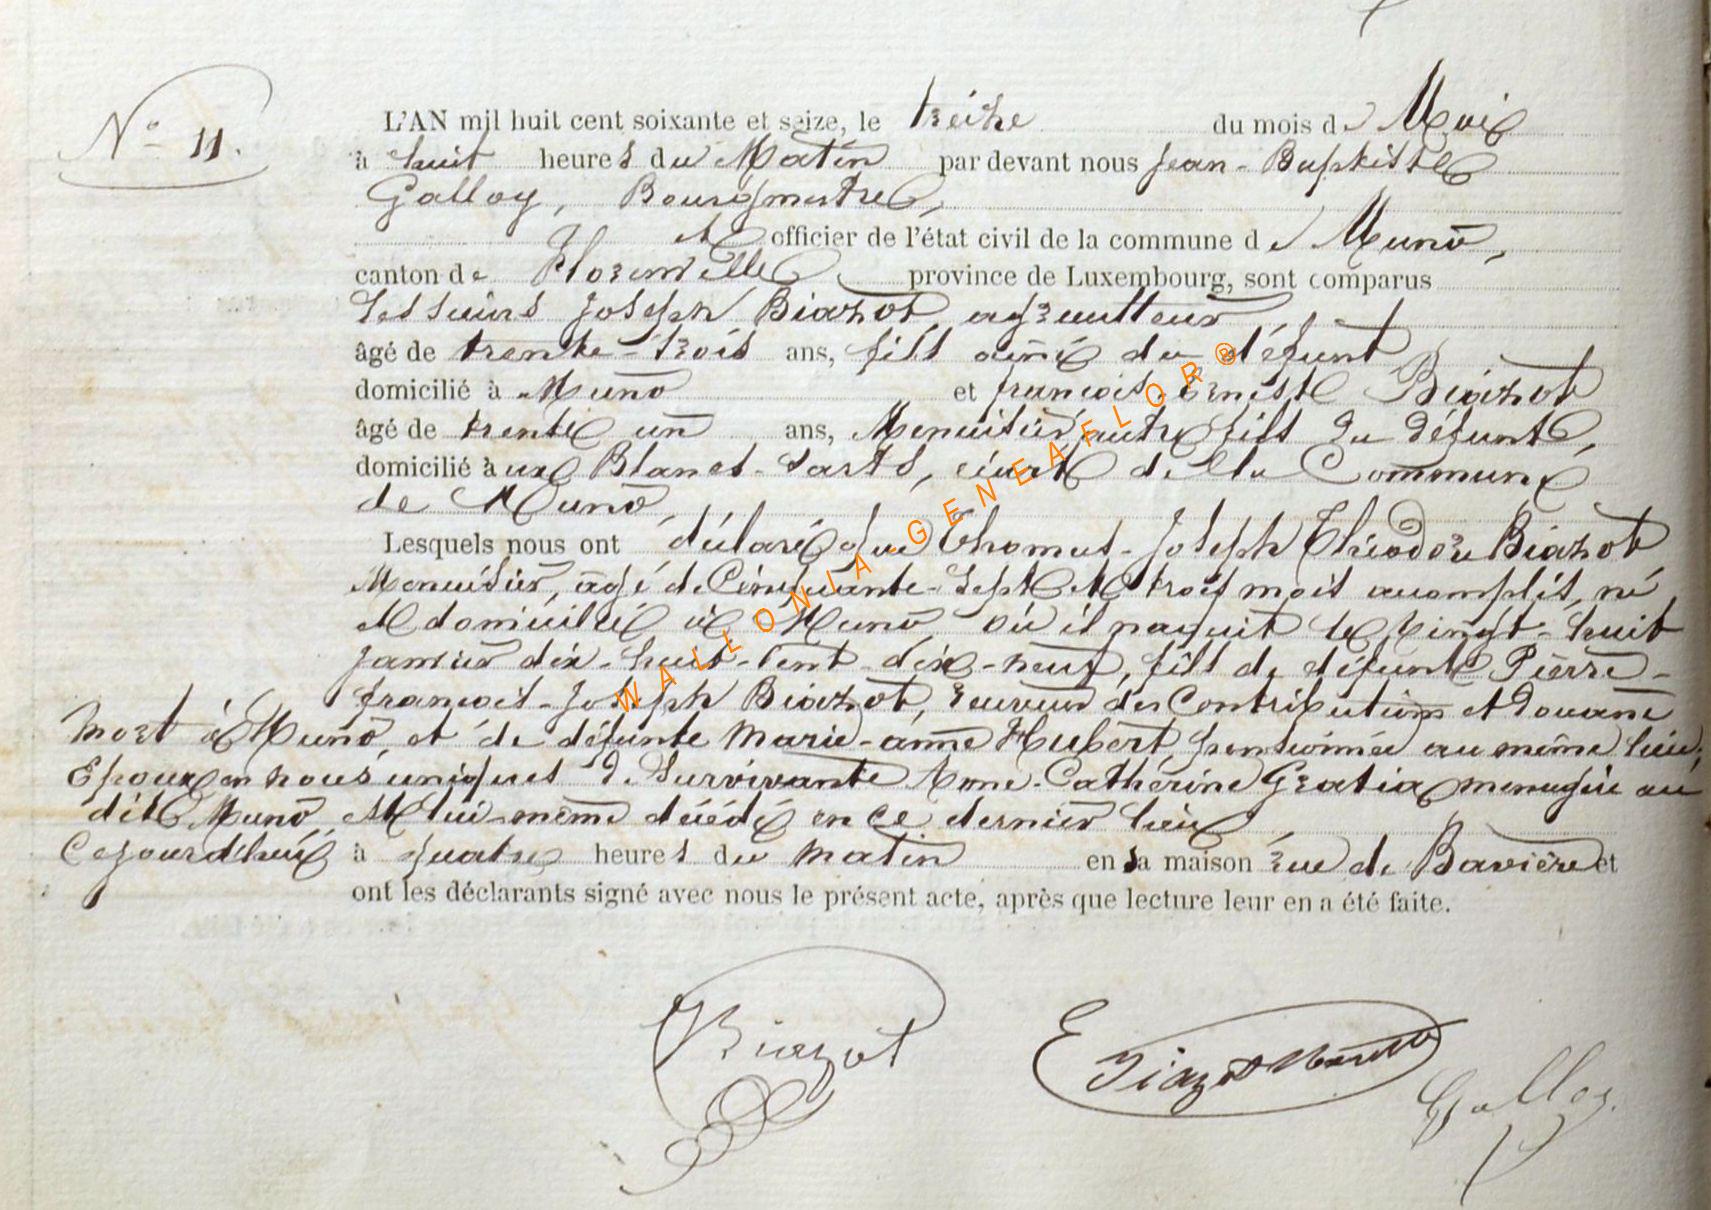 N° 11.
L'AN mil huit cent soixante et seize, le treize du mois de Mai
à huit heures du Matin par devant nous Jean-Baptiste
Galloy, Bourgmestre,
et officier de l'état civil de la commune de Muno,
canton de Florenville province de Luxembourg, sont comparus
les sieurs Joseph Biazot, agriculteur
âgé de trente-trois ans, fils ainé du défunt
domicilié à Muno et françois-Erneste Biazot
âgé de trente un ans, Menuisier, autre fils du défunt,
domicilié aux Blancs-Sarts, écart de la Commune
de Muno,
Lesquels nous ont déclaré que Thomas-Joseph Théodore Biazot
Menuisier, âgé de Cinquante-Sept et trois mois accomplis, né
et domicilié à Muno où il naquit le Vingt-huit
janvier dix-huit-Cent-dix-neuf, fils de défunt Pierre-
françois-Joseph Biazot, receveur des Contributions et Douane
mort à Muno, et de défunte Marie-anne Hubert, pensionnée au même lieu;
Epoux en noces uniques de Survivante Anne-Cathérine Gratia menagère au
dit Muno, et lui-même décédé en ce dernier lieu
Cejourd'hui à quatre heures du matin en sa maison rue de Bavière et
ont les déclarants signé avec nous le présent acte, après que lecture leur en a été faite.
Biazot
E Biazot
Galloy.
WALLONIA-GENEAFLOR®